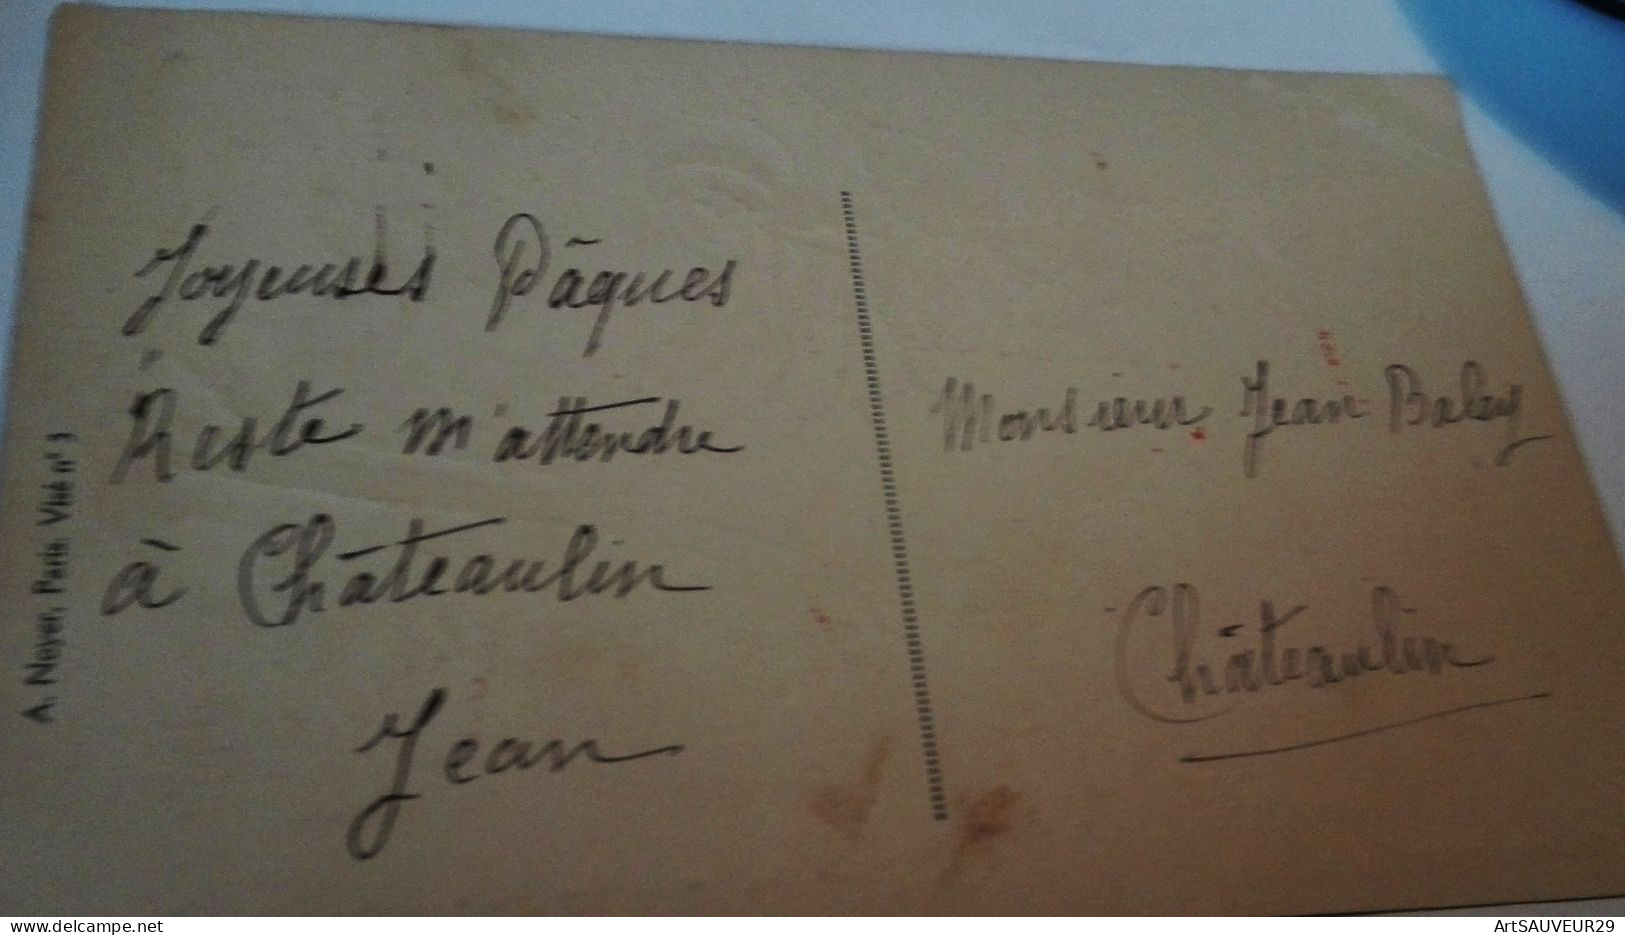 Joyeuses Pâques
Reste m'attendre
à Châteaulin
Jean
Monsieur Jean Baley
Châteaulin
A. Noyer, Paris. Visé n° 3
ArtSAUVEUR29